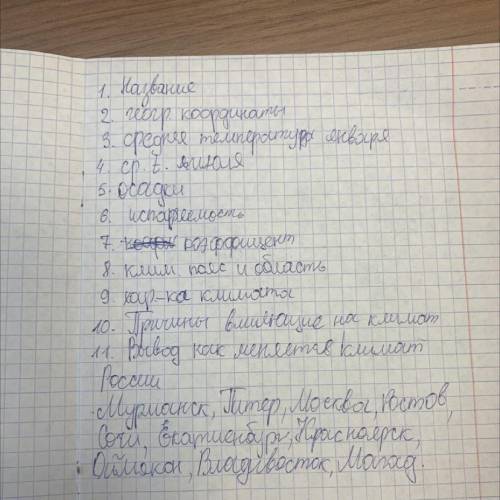 1. Название
2. геогр координаты
3. средняя температура января
4. ср. t. июля
5. осадки
6. испаряемость
7. коэффициент
8. клим. пояс и область
9. хар-ка климата
10. Причины влияющие на климат
11. Вывод как меняется климат
России
Мурманск, Питер, Москва, Ростов,
Сочи, Екатиенбург, Красноярск,
Оймокон, Владивосток, Магад.